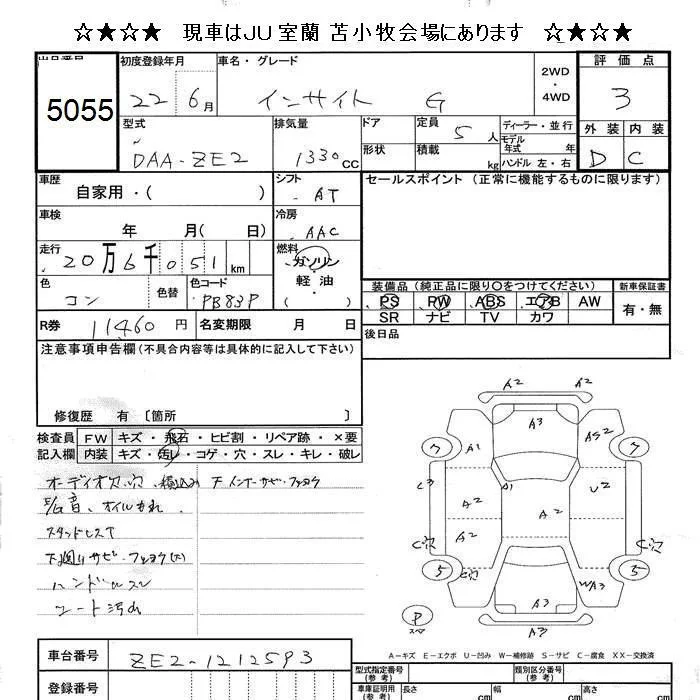 ☆★☆★ 現車はJU室蘭 苫小牧会場にあります ☆★☆★
出品番号 初度登録年月 車名・グレード 2WD・4WD 評価点
5055 22 6月 インサイト G 3
型式 排気量 ドア 定員 5人 ディーラー・並行 外装 内装
DAA-ZE2 1330cc 形状 積載 kg モデル年式 年 ハンドル 左・右 D C
車歴 自家用・( ) シフト AT セールスポイント (正常に機能するものに限ります)
車検 年 月( 日) 冷房 AAC
走行 20万6千051km 燃料 ガソリン
軽油・( )
色 コン 色替 色コード PB83P
装備品 (純正品に限り○をつけてください) 新車保証書
PS PW ABS エアB AW 有・無
SR ナビ TV カワ
R券 11460円 名変期限 月 日 後日品
注意事項申告欄(不具合内容等は具体的に記入して下さい)
修復歴 有〔箇所 〕
検査員記入欄 FW キズ・飛石・ヒビ割・リペア跡・×要
内装 キズ・汚レ・コゲ・穴・スレ・キレ・破レ
オーディオ欠、穴、積込み 下インナーサビ・フショク
音、オイルもれ
スタッドレスT
下廻りサビ・フショク(大)
ハンドルスレ
シート汚れ
A2 A2
A3
7 A1 AS2 7
C3 A1 U2
A2 A2
A2
C穴 C穴
5 C穴 5
WA3
A3
P スペア A3
A-キズ E-エクボ U-凹み W-補修跡 S-サビ C-腐食 XX-交換済
車台番号 ZE2-1212593
型式指定番号(参考) 類別区分番号(参考)
登録番号 車庫証明用(参考) 長さ cm 幅 cm 高さ cm